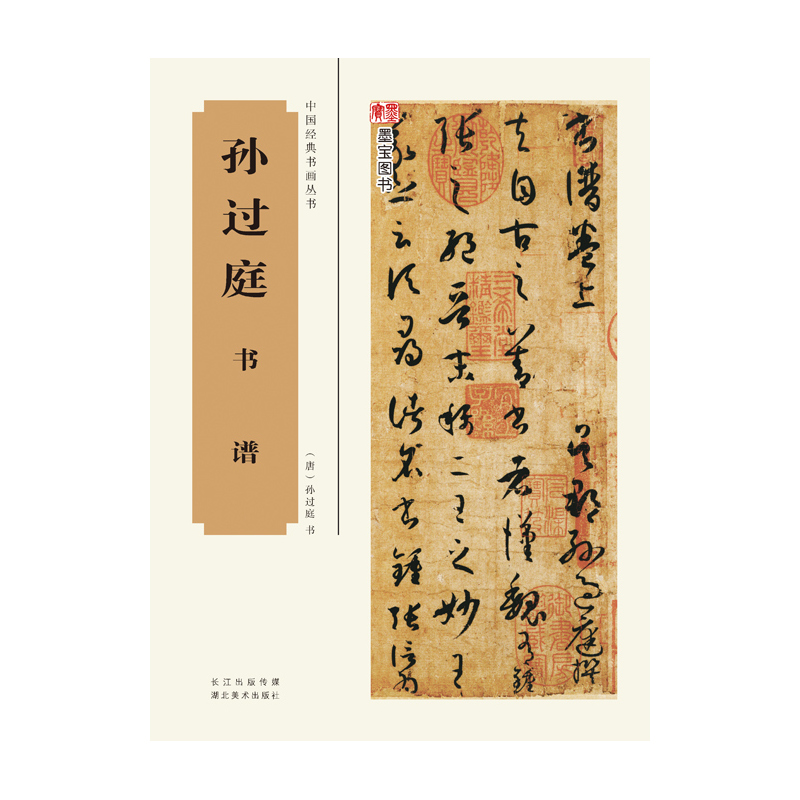 中国经典书画丛书
孙过庭
书谱
（唐）孙过庭 书
长江出版传媒
湖北美术出版社
墨宝
墨宝图书
书谱卷上 吴郡孙过庭撰
夫自古之善书者汉魏有钟
张之绝晋末称二王之妙王
羲之云顷寻诸名书钟张信为